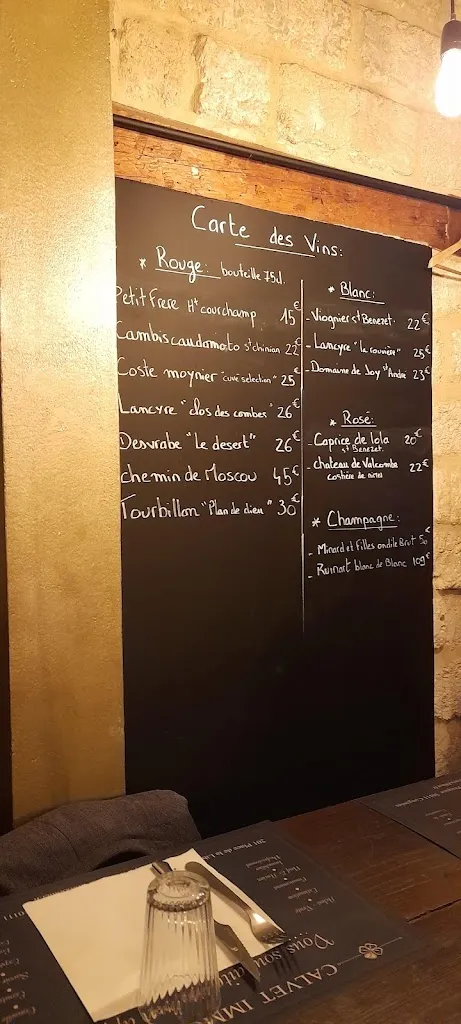 Carte des Vins:
* Rouge: bouteille 75cl.
Petit Frere Ht courchamp 15€
Cambis caudomato St chinian 22€
Coste moynier "cuvé selection" 25€
Lancyre "clos des combes" 26€
Desvrabe "Le desert" 26€
chemin de Moscou 45€
Tourbillon "Plan de dieu" 30€
* Blanc:
- Viognier St Benezet. 22€
- Lancyre "la rouvière" 25€
- Domaine de Joy St André 23€
* Rosé:
- Caprice de lola 20€
St Benezet.
- chateau de Valcombe 22€
costière de nimes
* Champagne:
- Minard et Filles ondile Brut 50€
- Ruinart blanc de Blanc 109€
201 Place de la
CALVET IMMO
Vous sou